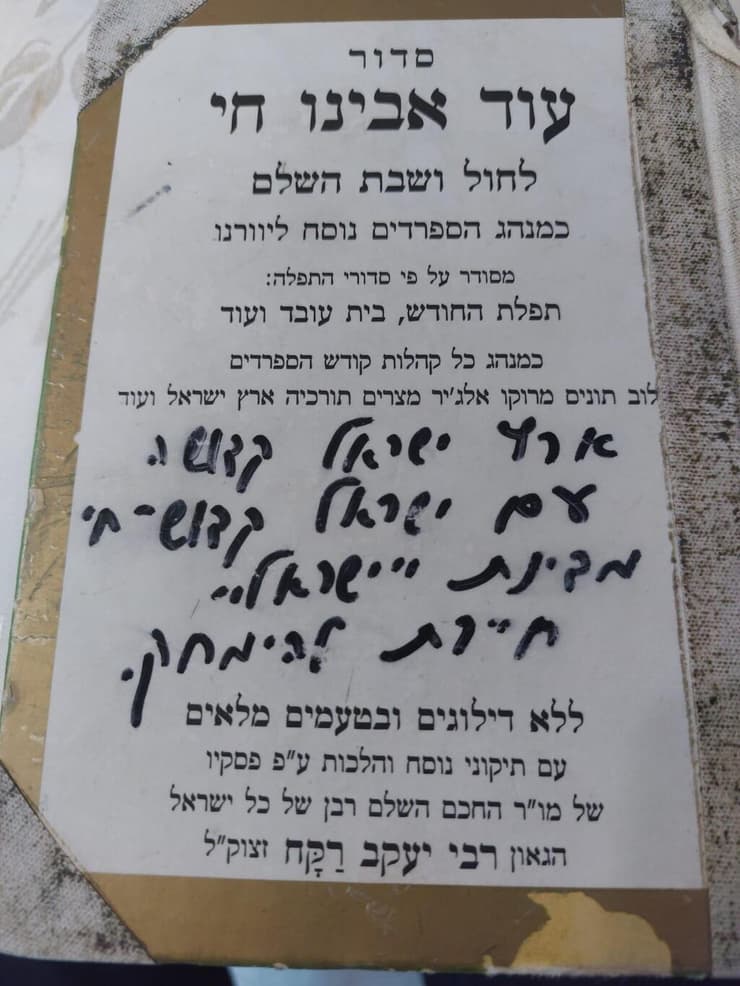 סדור
עוד אבינו חי
לחול ושבת השלם
כמנהג הספרדים נוסח ליוורנו
מסודר על פי סדורי התפלה:
תפלת החודש, בית עובד ועוד
כמנהג כל קהלות קודש הספרדים
לוב תונים מרוקו אלג׳יר מצרים תורכיה ארץ ישראל ועוד
ארץ ישראל קדושה.
עם ישראל קדוש-חי.
מדינת "ישראל"
חייבת להימחק.
ללא דילוגים ובטעמים מלאים
עם תיקוני נוסח והלכות ע"פ פסקיו
של מו"ר החכם השלם רבן של כל ישראל
הגאון רבי יעקב רַקָּח זצוק"ל